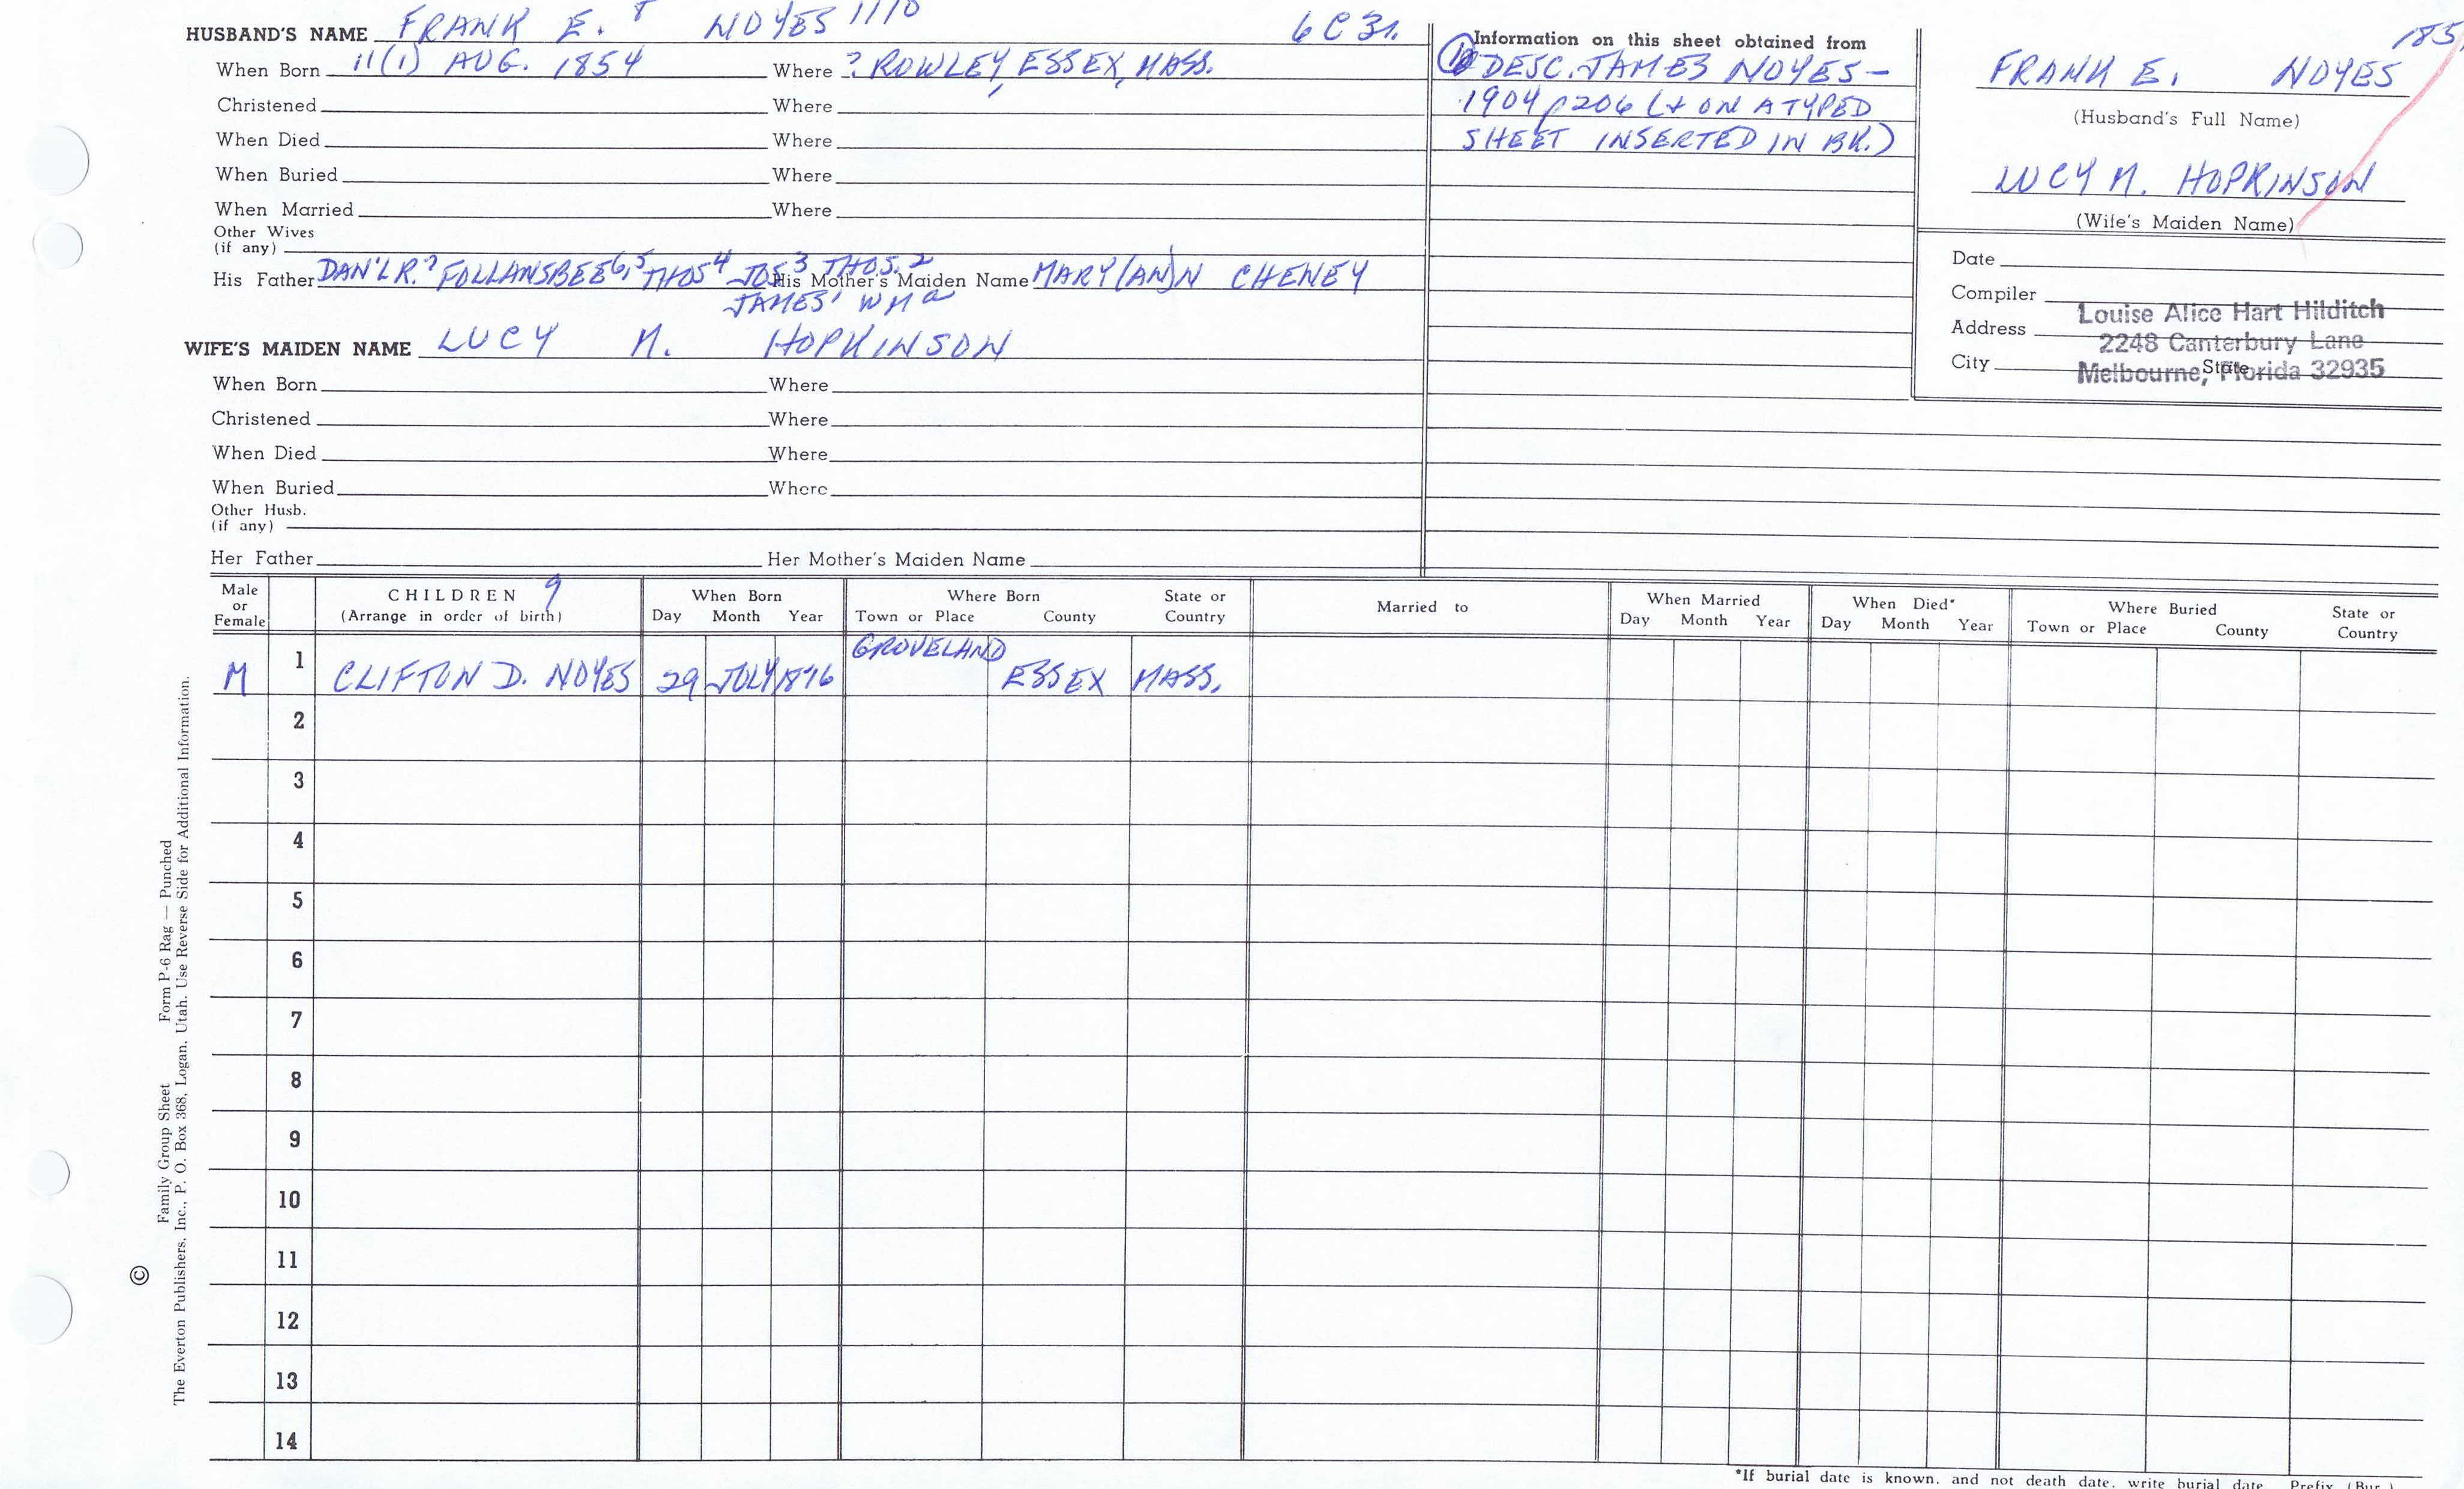 HUSBAND'S NAME FRANK E. 8 NOYES 1110 6C31.
When Born 11(1) AUG. 1854 Where ? ROWLEY, ESSEX, MASS.
Christened Where
When Died Where
When Buried Where
When Married Where
Other Wives
(if any)
His Father DAN'L R.7 FOLLANSBEE 6,5 THOS 4 JOS. 3 THOS. 2 His Mother's Maiden Name MARY (AN)N CHENEY
JAMES 1 WM a
WIFE'S MAIDEN NAME LUCY M. HOPKINSON
When Born Where
Christened Where
When Died Where
When Buried Where
Other Husb.
(if any)
Her Father Her Mother's Maiden Name
Information on this sheet obtained from
DESC. JAMES NOYES -
1904 p206 (+ ON A TYPED
SHEET INSERTED IN BK.)
185
FRANK E. NOYES
(Husband's Full Name)
LUCY M. HOPKINSON
(Wife's Maiden Name)
Date
Compiler Louise Alice Hart Hilditch
Address 2248 Canterbury Lane
City State Melbourne, Florida 32935
Male or Female CHILDREN 9 (Arrange in order of birth) When Born Day Month Year Where Born Town or Place County State or Country Married to When Married Day Month Year When Died* Day Month Year Where Buried Town or Place County State or Country
M 1 CLIFTON D. NOYES 29 JULY 1876 GROVELAND ESSEX MASS.
2
3
4
5
6
7
8
9
10
11
12
13
14
*If burial date is known, and not death date, write burial date Prefix (Bur.)
© Family Group Sheet Form P-6 Rag — Punched
The Everton Publishers, Inc., P. O. Box 368, Logan, Utah. Use Reverse Side for Additional Information.